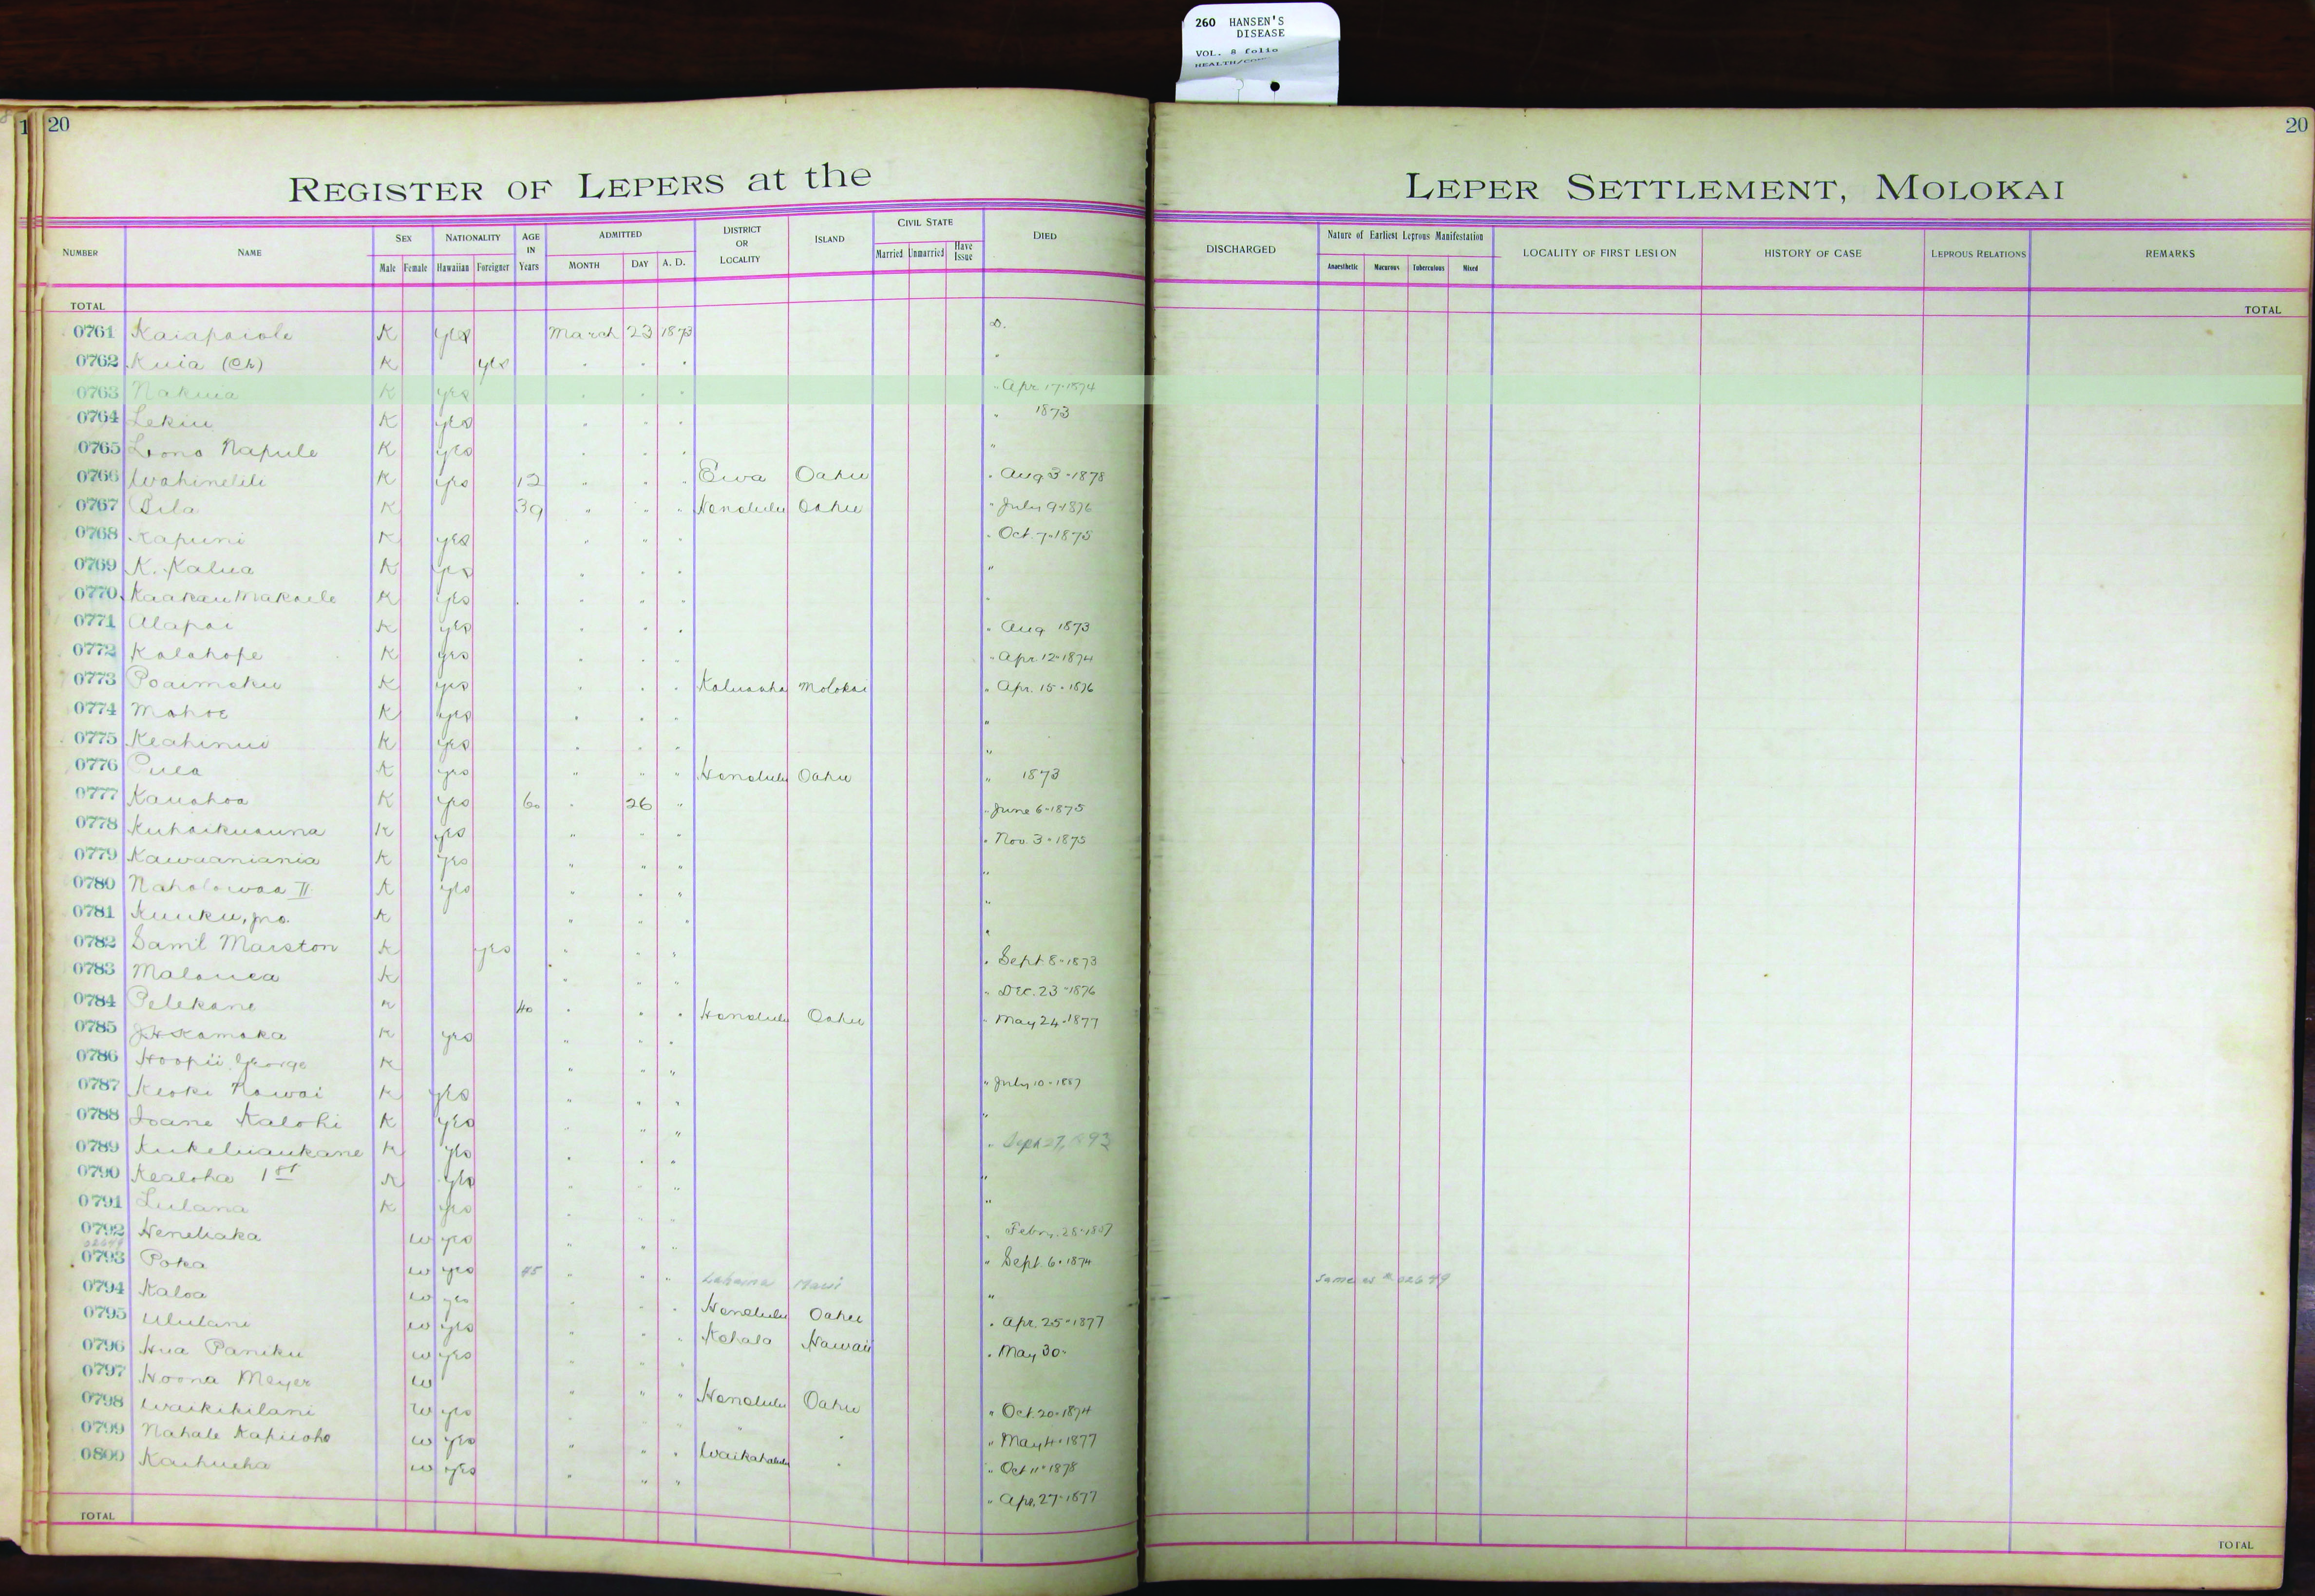 260 HANSEN'S
DISEASE
VOL. 8 folio
20
20
REGISTER OF LEPERS at the LEPER SETTLEMENT, MOLOKAI
NUMBER NAME SEX Male Female NATIONALITY Hawaiian Foreigner AGE IN Years ADMITTED MONTH DAY A. D. DISTRICT OR LOCALITY ISLAND CIVIL STATE Married Unmarried Have Issue DIED DISCHARGED Nature of Earliest Leprous Manifestation Anaesthetic Macurous Tuberculous Mixed LOCALITY OF FIRST LESION HISTORY OF CASE LEPROUS RELATIONS REMARKS
TOTAL TOTAL
0761 Kaiapaiole K yes March 23 1873 D.
0762 Kuia (Ch) K yes " " " "
0763 Nakuia K yes " " " " Apr 17-1874
0764 Lekiu K yes " " " " 1873
0765 Lono Napule K yes " " " "
0766 Wahinelili K yes 12 " " " Ewa Oahu " Aug 3-1878
0767 Pila K 39 " " " Honolulu Oahu " July 9-1876
0768 Kapuni K yes " " " " Oct. 7-1875
0769 K. Kalua K yes " " " "
0770 Kaakau Makaele K yes " " " "
0771 Alapai K yes " " " " Aug 1873
0772 Kalahope K yes " " " " Apr. 12-1874
0773 Poaimoku K yes " " " Kaluaaha Molokai " Apr. 15-1876
0774 Mahoe K yes " " " "
0775 Keahinui K yes " " " "
0776 Pula K yes " " " Honolulu Oahu " 1873
0777 Kauahoa K yes 60 " 26 " " June 6-1875
0778 Kuhaikuauna K yes " " " " Nov. 3-1875
0779 Kawaaniania K yes " " " "
0780 Naholowaa II K yes " " " "
0781 Kuuku, jno. K " " " "
0782 Saml Marston K yes " " " " Sept 8-1873
0783 Malouea K " " " " Dec. 23-1876
0784 Pelekane K 40 " " " Honolulu Oahu " May 24-1877
0785 J.H. Kamaka K yes " " "
0786 Hoopii George K " " " " July 10-1887
0787 Keoki Nawai K yes " " " "
0788 Ioane Kalohi K yes " " " " Sept 27, 1893
0789 Kukeluaukane K yes " " " "
0790 Kealoha 1st K yes " " " "
0791 Lulana K yes " " " " Feby. 28-1887
0792 Heneliaka W yes " " " " Sept. 6-1874
02649
0793 Poka W yes 45 " " " Lahaina Maui " same as # 02649
0794 Kaloa W yes " " " Honolulu Oahu " Apr. 25-1877
0795 Ululani W yes " " " Kohala Hawaii " May 30-
0796 Hua Paniku W yes " " "
0797 Hoona Meyer W " " " Honolulu Oahu " Oct. 20-1874
0798 Waikikilani W yes " " " " May 4-1877
0799 Nahale Kapiioho W yes " " " Waikahalulu " " Oct 11-1878
0800 Kaihueha W yes " " " " Apr. 27-1877
TOTAL TOTAL